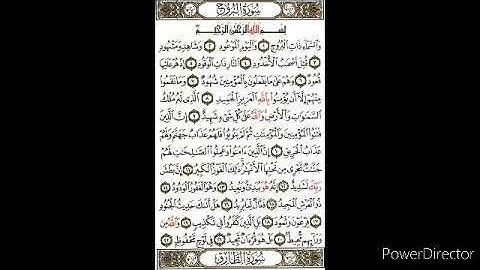 سُورَةُ البُرُوج
بِسْمِ اللَّهِ الرَّحْمَٰنِ الرَّحِيمِ
وَالسَّمَاءِ ذَاتِ الْبُرُوجِ ١ وَالْيَوْمِ الْمَوْعُودِ ٢ وَشَاهِدٍ وَمَشْهُودٍ
٣ قُتِلَ أَصْحَابُ الْأُخْدُودِ ٤ النَّارِ ذَاتِ الْوَقُودِ ٥ إِذْ هُمْ عَلَيْهَا
قُعُودٌ ٦ وَهُمْ عَلَىٰ مَا يَفْعَلُونَ بِالْمُؤْمِنِينَ شُهُودٌ ٧ وَمَا نَقَمُوا
مِنْهُمْ إِلَّا أَنْ يُؤْمِنُوا بِاللَّهِ الْعَزِيزِ الْحَمِيدِ ٨ الَّذِي لَهُ مُلْكُ
السَّمَاوَاتِ وَالْأَرْضِ وَاللَّهُ عَلَىٰ كُلِّ شَيْءٍ شَهِيدٌ ٩ إِنَّ الَّذِينَ
فَتَنُوا الْمُؤْمِنِينَ وَالْمُؤْمِنَاتِ ثُمَّ لَمْ يَتُوبُوا فَلَهُمْ عَذَابُ جَهَنَّمَ وَلَهُمْ
عَذَابُ الْحَرِيقِ ١٠ إِنَّ الَّذِينَ آمَنُوا وَعَمِلُوا الصَّالِحَاتِ لَهُمْ
جَنَّاتٌ تَجْرِي مِنْ تَحْتِهَا الْأَنْهَارُ ذَٰلِكَ الْفَوْزُ الْكَبِيرُ ١١ إِنَّ بَطْشَ
رَبِّكَ لَشَدِيدٌ ١٢ إِنَّهُ هُوَ يُبْدِئُ وَيُعِيدُ ١٣ وَهُوَ الْغَفُورُ الْوَدُودُ ١٤
ذُو الْعَرْشِ الْمَجِيدُ ١٥ فَعَّالٌ لِمَا يُرِيدُ ١٦ هَلْ أَتَاكَ حَدِيثُ الْجُنُودِ
١٧ فِرْعَوْنَ وَثَمُودَ ١٨ بَلِ الَّذِينَ كَفَرُوا فِي تَكْذِيبٍ ١٩ وَاللَّهُ مِنْ
وَرَائِهِمْ مُحِيطٌ ٢٠ بَلْ هُوَ قُرْآنٌ مَجِيدٌ ٢١ فِي لَوْحٍ مَحْفُوظٍ ٢٢
سُورَةُ الطَّارِق
PowerDirector